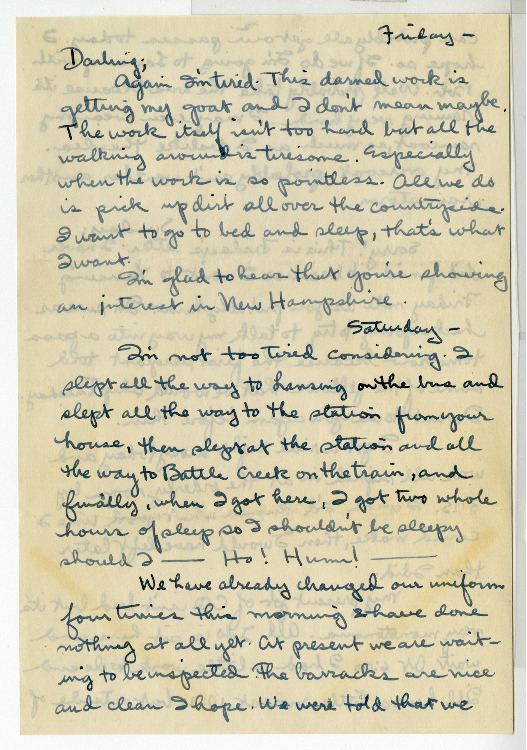 Friday –
Darling;
Again I'm tired. This darned work is
getting my goat and I don't mean maybe.
The work itself isn't too hard but all the
walking around is tiresome. Especially
when the work is so pointless. All we do
is pick up dirt all over the countryside.
I want to go to bed and sleep, that's what
I want.
I'm glad to hear that you're showing
an interest in New Hampshire.
Saturday –
I'm not too tired considering. I
slept all the way to Lansing on the bus and
slept all the way to the station from your
house, then slept at the station and all
the way to Battle Creek on the train, and
finally, when I got here, I got two whole
hours of sleep so I shouldn't be sleepy
should I — Ho! Hum! —
We have already changed our uniform
four times this morning & have done
nothing at all yet. At present we are wait-
ing to be inspected. The barracks are nice
and clean I hope. We were told that we